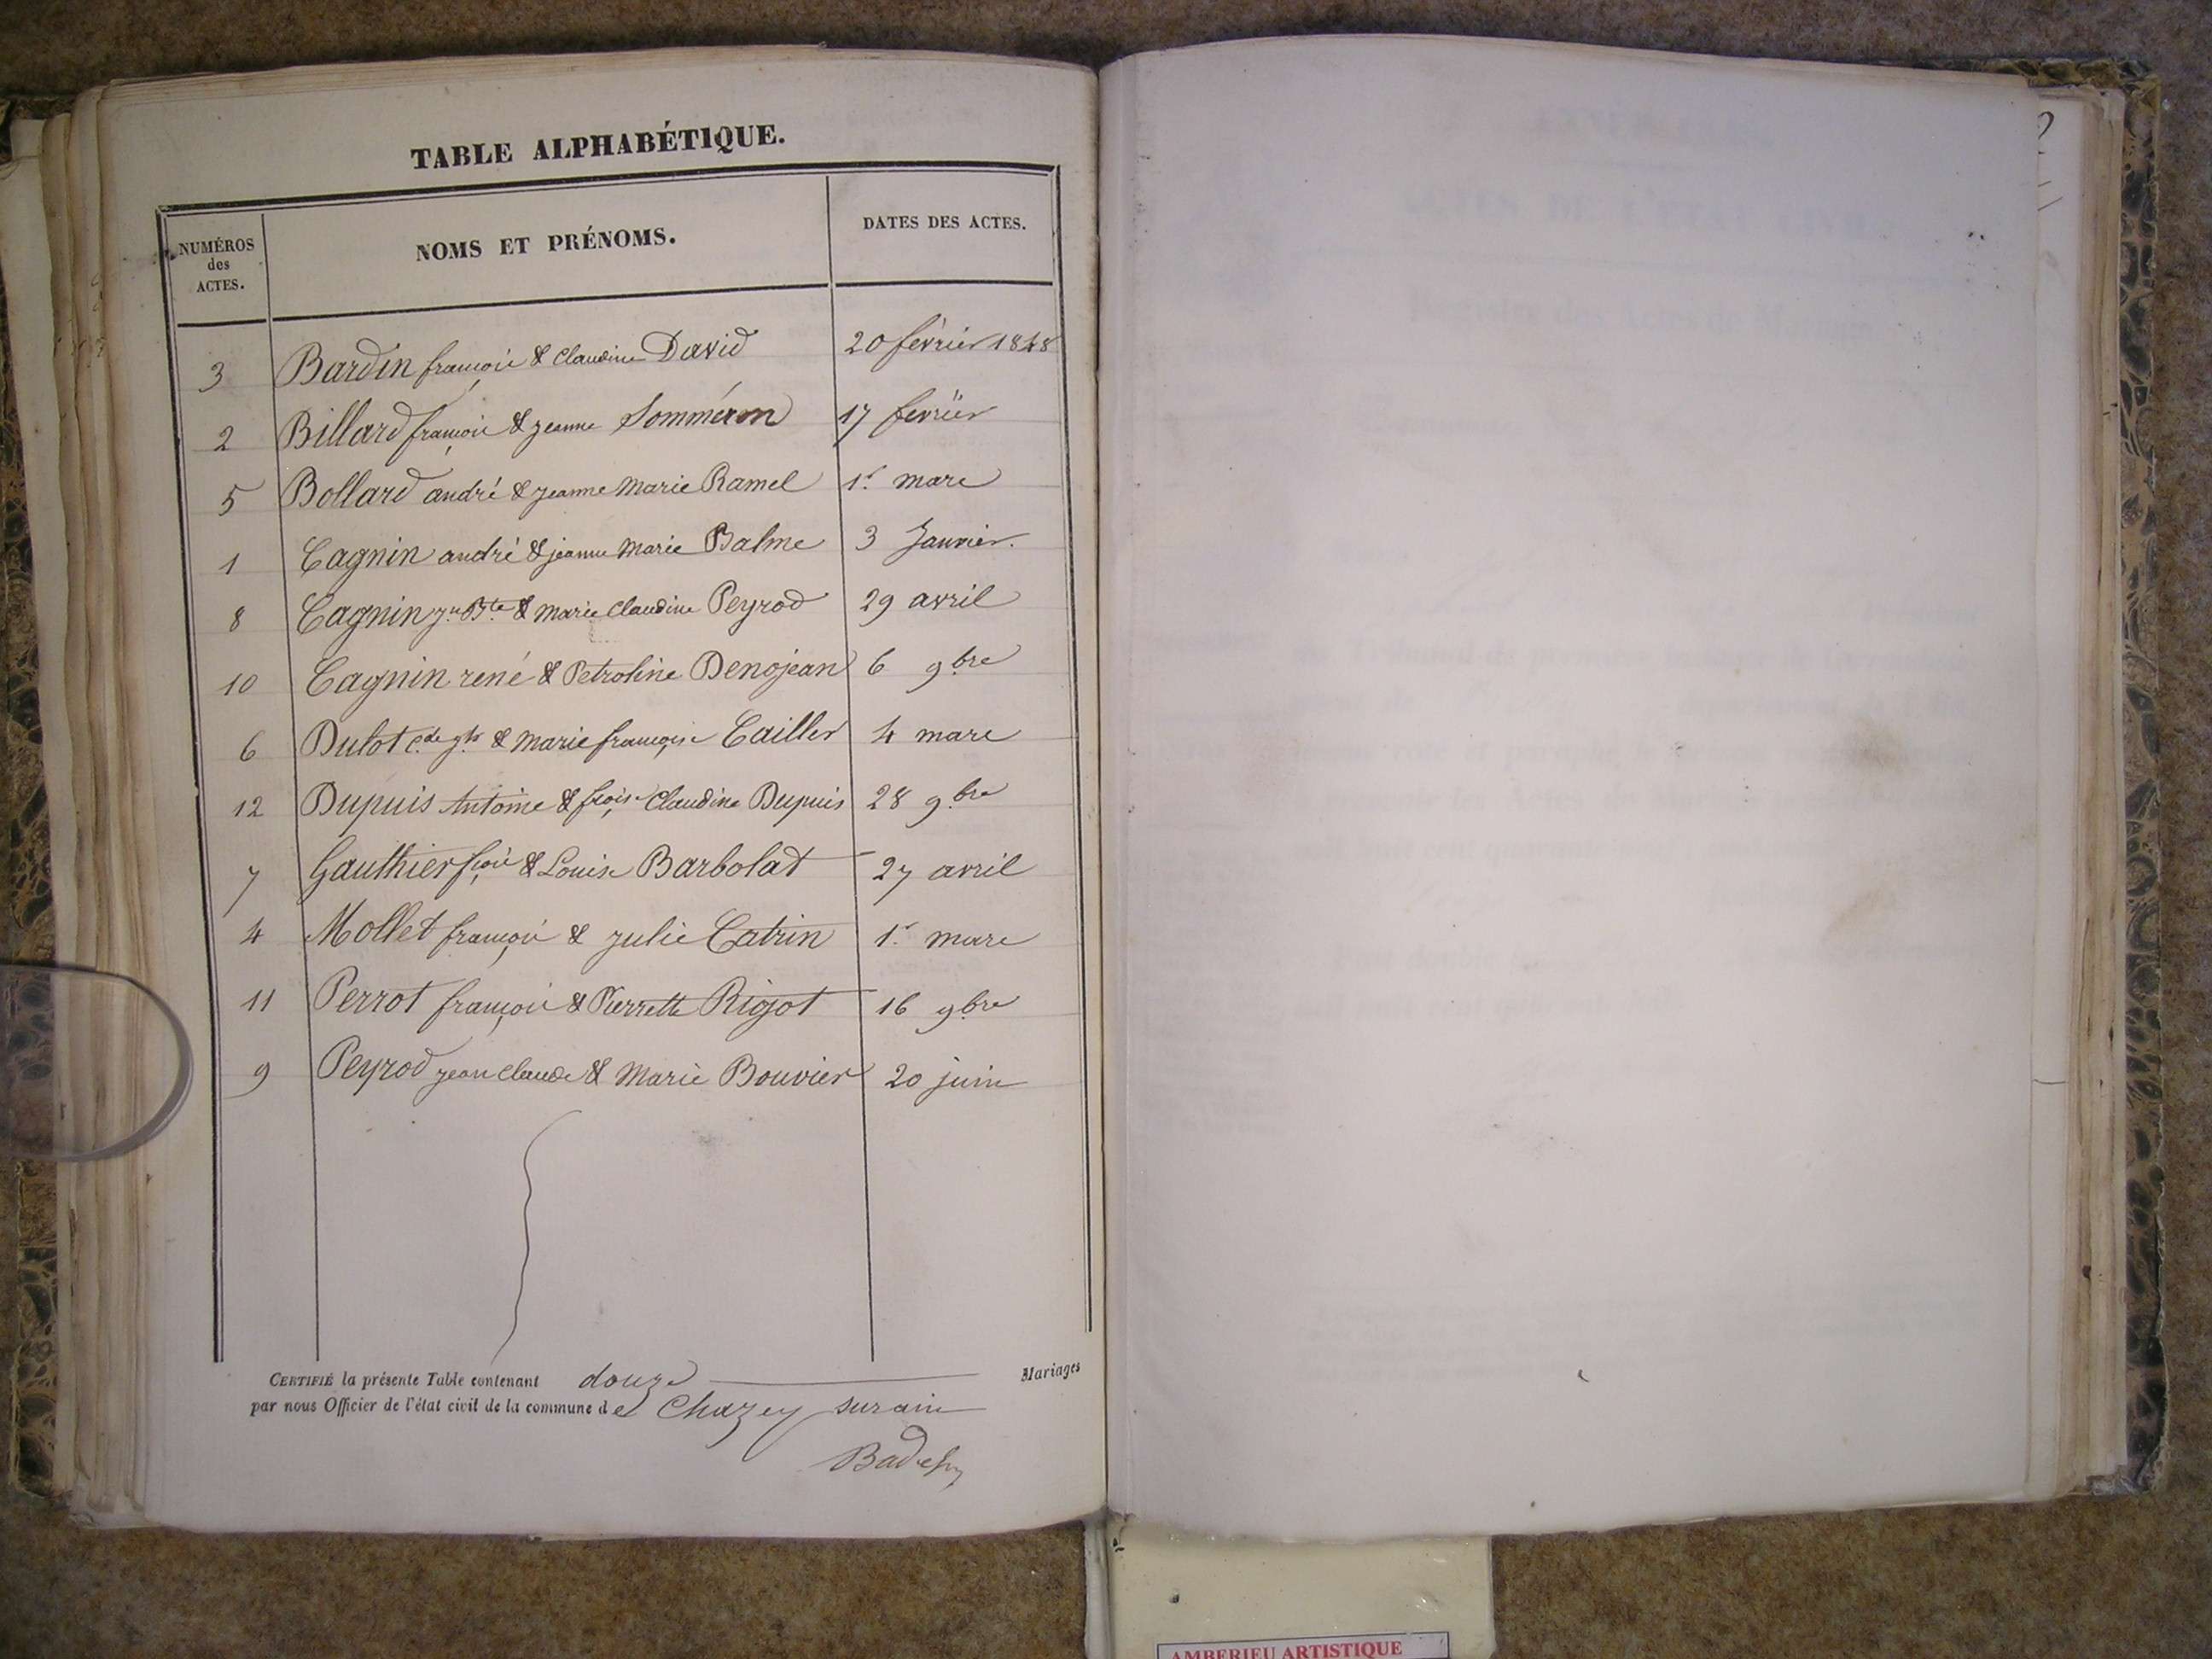 TABLE ALPHABÉTIQUE.
NUMÉROS des ACTES. NOMS ET PRÉNOMS. DATES DES ACTES.
3 Bardin françois & Claudine David 20 février 1848
2 Billard françois & jeanne Somméron 17 fevrier
5 Bollard andré & jeanne Marie Ramel 1r. mars
1 Cagnin andré & jeanne Marie Balme 3 Janvier.
8 Cagnin jn. Bte. & Marie Claudine Peyrod 29 avril
10 Cagnin rené & Petroline Denojean 6 9bre
6 Dulot & Marie françoise Cailler 4 mars
12 Dupuis Antoine & froise Claudine Dupuis 28 9bre
7 Gauthier fçois & Louise Barbolat 27 avril
4 Mollet françois & julie Catrin 1r. mars
11 Perrot françois & Pierrette Rigot 16 9bre
9 Peyrod jean Claude & Marie Bouvier 20 juin
CERTIFIÉ la présente Table contenant douze Mariages
par nous Officier de l'état civil de la commune de Chazey sur ain
AMBERIEU ARTISTIQUE